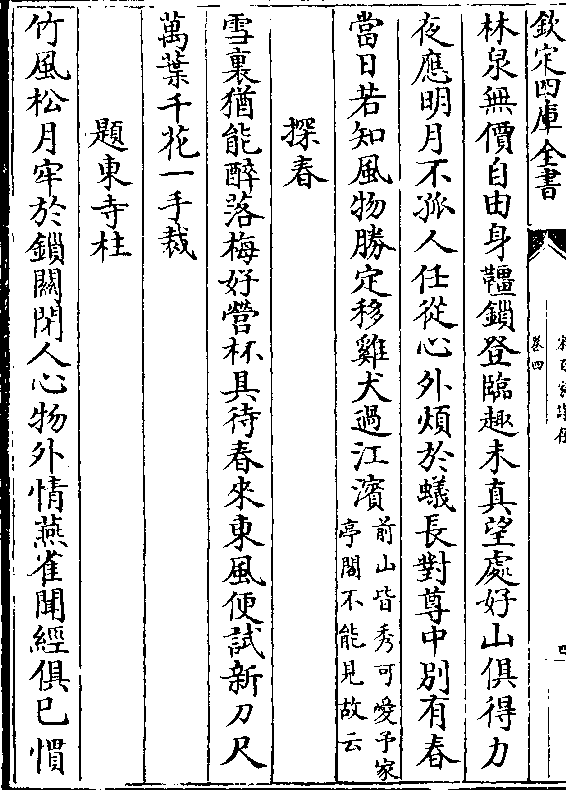 欽定四庫全書
卷四
林泉無價自由身韁鎖登臨趣未真望處好山俱得力
夜應明月不孤人任從心外煩於蟻長對尊中別有春
當日若知風物勝定移雞犬過江濱前山皆秀可愛予家
亭閣不能見故云
探春
雪裏猶能醉落梅好營杯具待春來東風便試新刀尺
萬葉千花一手裁
題東寺柱
竹風松月牢於鎖關閉人心物外情燕雀聞經俱已慣